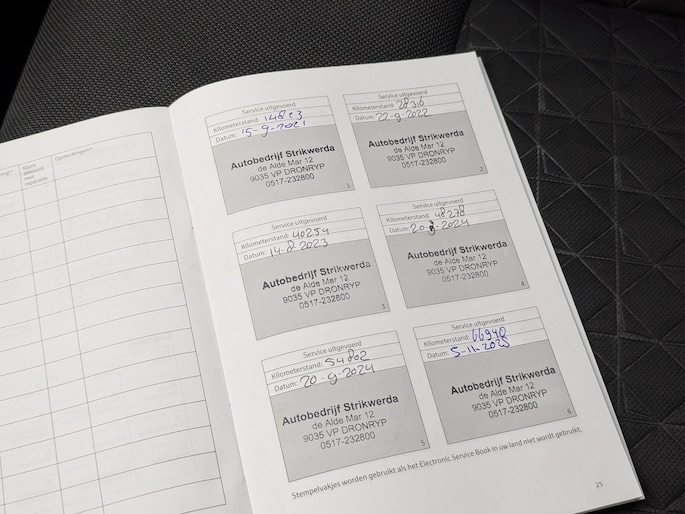 Opmerkingen*
Service uitgevoerd
Kilometerstand: 14823
Datum: 15-9-2021
Autobedrijf Strikwerda
de Alde Mar 12
9035 VP DRONRYP
0517-232800
1
Service uitgevoerd
Kilometerstand: 28316
Datum: 22-9-2022
Autobedrijf Strikwerda
de Alde Mar 12
9035 VP DRONRYP
0517-232800
2
Service uitgevoerd
Kilometerstand: 40254
Datum: 14-8-2023
Autobedrijf Strikwerda
de Alde Mar 12
9035 VP DRONRYP
0517-232800
3
Service uitgevoerd
Kilometerstand: 48278
Datum:
Autobedrijf Strikwerda
de Alde Mar 12
9035 VP DRONRYP
0517-232800
4
Service uitgevoerd
Kilometerstand: 54802
Datum: 20-9-2024
Autobedrijf Strikwerda
de Alde Mar 12
9035 VP DRONRYP
0517-232800
5
Service uitgevoerd
Kilometerstand: 66940
Datum: 5-11-2025
Autobedrijf Strikwerda
de Alde Mar 12
9035 VP DRONRYP
0517-232800
6
Stempelvakjes worden gebruikt als het Electronic Service Book in uw land niet wordt gebruikt.
25